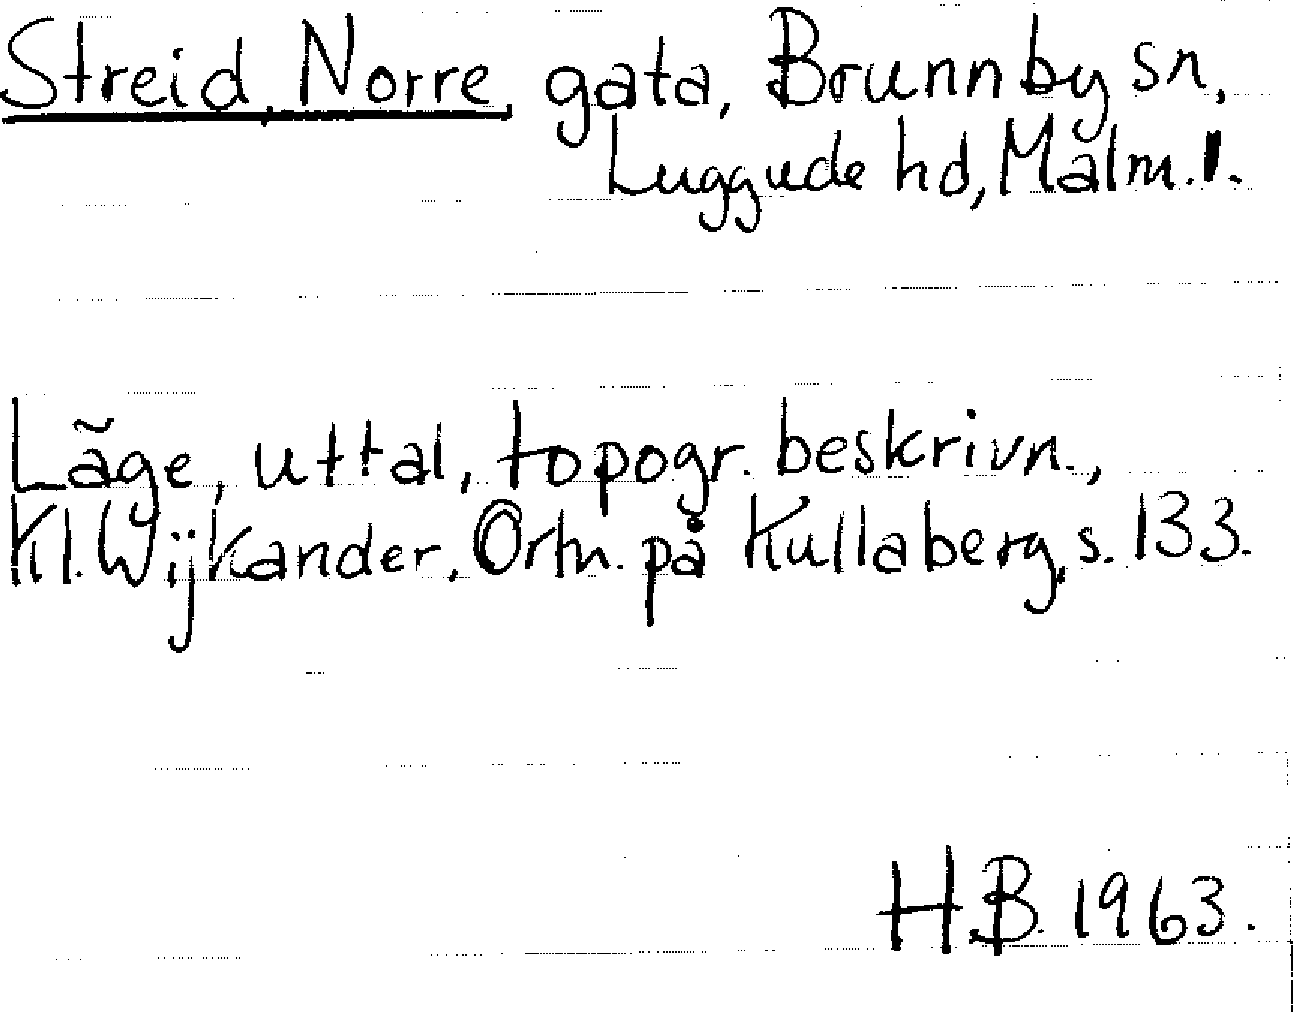 Streid, Norre, gata, Brunnby sn,
Luggude hd, Malm. l.
Läge, uttal, topogr. beskrivn.,
Kl. Wijkander, Ortn. på Kullaberg, s. 133.
H.B. 1963.